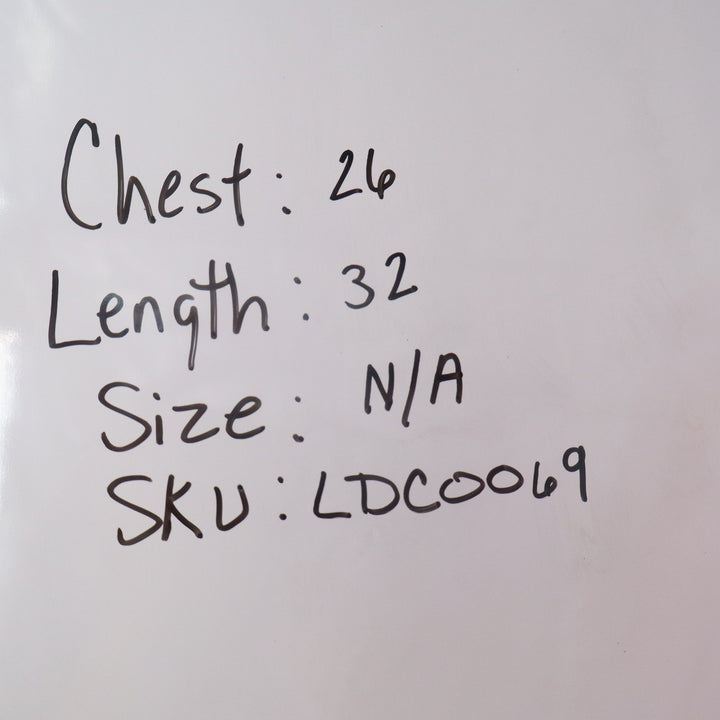 Chest: 26
Length: 32
Size: N/A
SKU: LDC0069